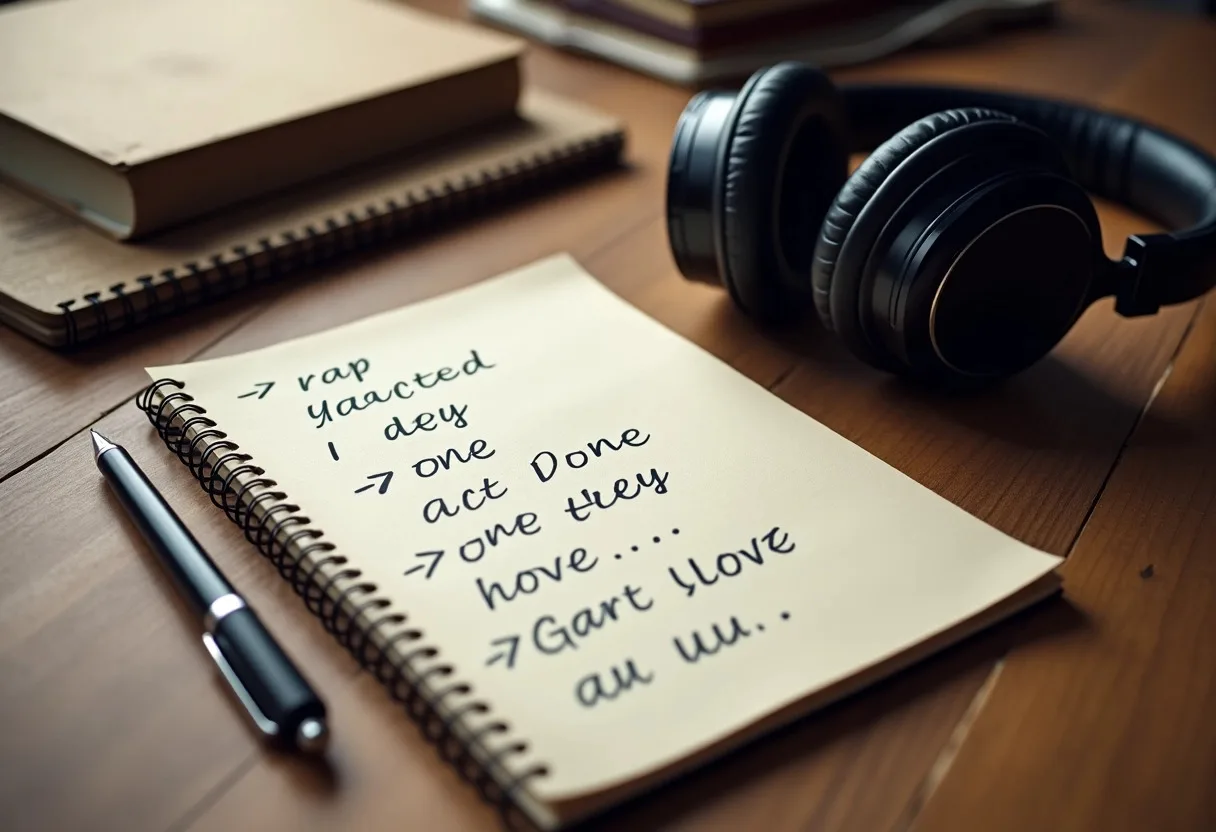 → rap
yaacted
I dey
→ one
act Done
→ one they
hove....
→ Gart love
au uu..